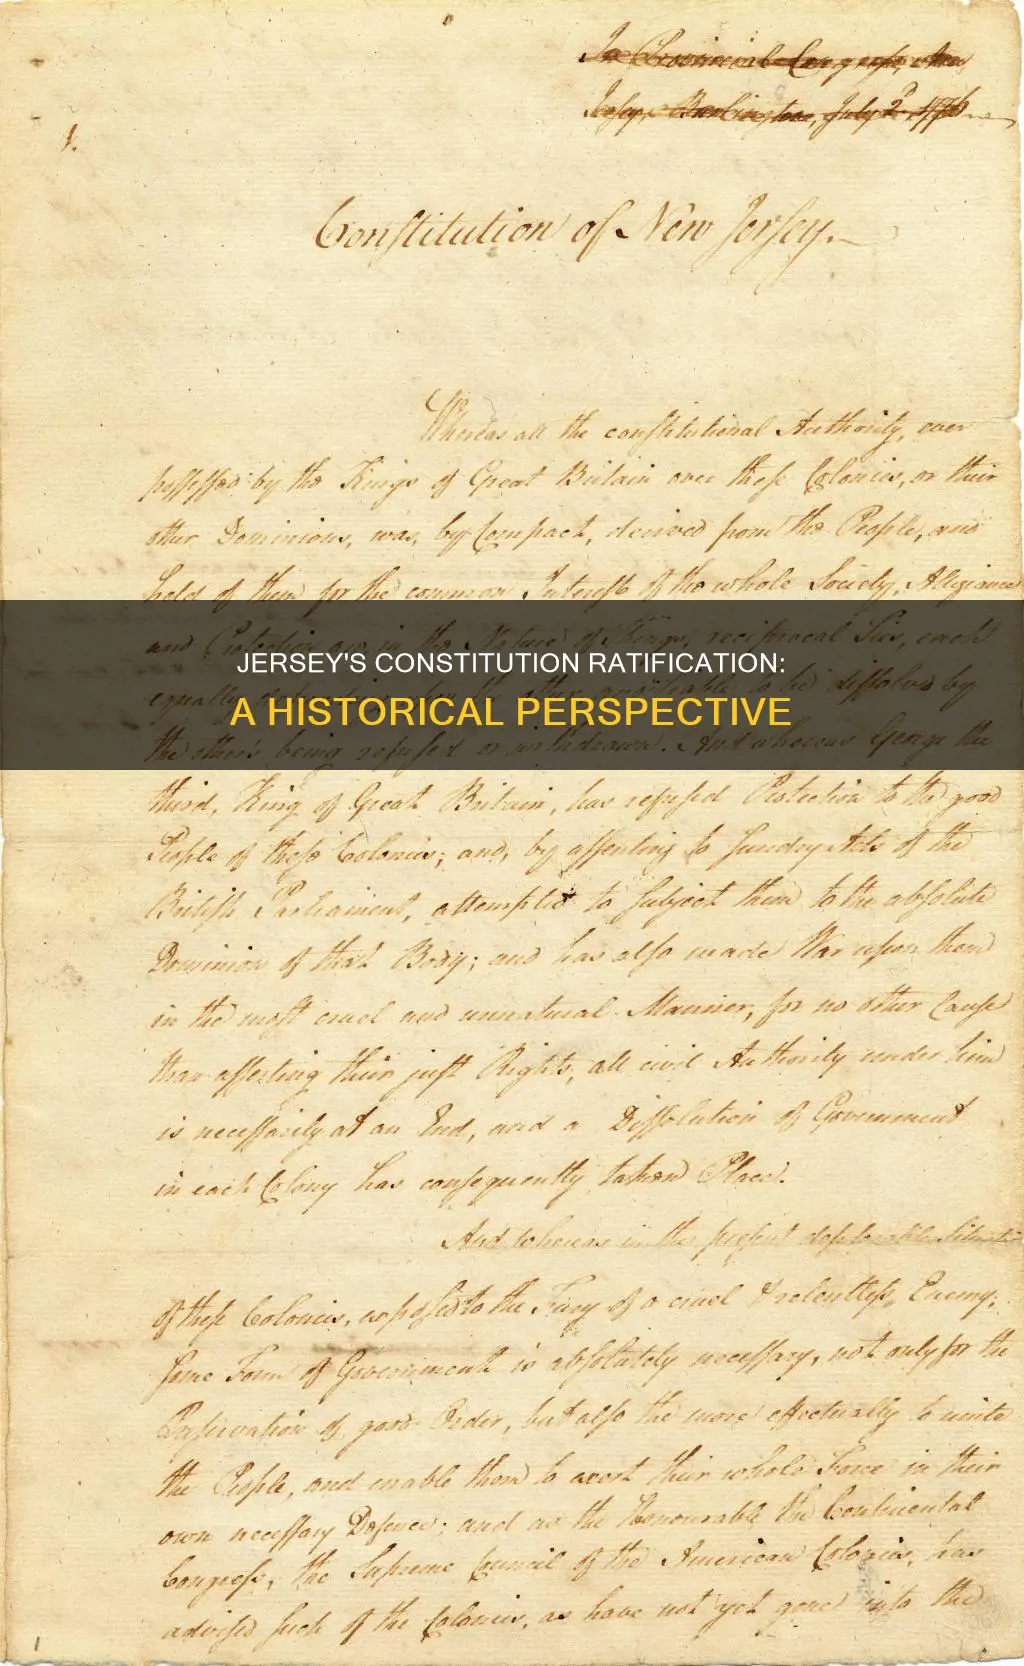 In Provincial Congress, New
Jersey, Burlington, July 2d 1776
1.
Constitution of New Jersey.
Whereas all the constitutional Authority, ever
possessed by the Kings of Great Britain over these Colonies, or their
other Dominions, was, by Compact, derived from the People, and
held of them for the common Interest of the whole Society, Allegiance
and Protection are in the Nature of Things, reciprocal Ties, each
JERSEY'S CONSTITUTION RATIFICATION:
equally depending upon the other, and liable to be dissolved by
A HISTORICAL PERSPECTIVE
the other's being refused or withdrawn. And whereas George the
third, King of Great Britain, has refused Protection to the good
People of these Colonies; and, by assenting to sundry Acts of the
British Parliament, attempted to subject them to the absolute
Dominion of that Body; and has also made War upon them
in the most cruel and unnatural Manner, for no other Cause
than asserting their just Rights, all civil Authority under him
is necessarily at an End, and a Dissolution of Government
in each Colony has consequently taken Place.
And whereas in the present deplorable Situation
of these Colonies, exposed to the Fury of a cruel & relentless Enemy,
some Form of Government is absolutely necessary, not only for the
Preservation of good Order, but also the more effectually to unite
the People, and enable them to exert their whole Force in their
own necessary Defence; and as the Honourable the Continental
Congress, the Supreme Council of the American Colonies, has
advised such of the Colonies, as have not yet gone into the